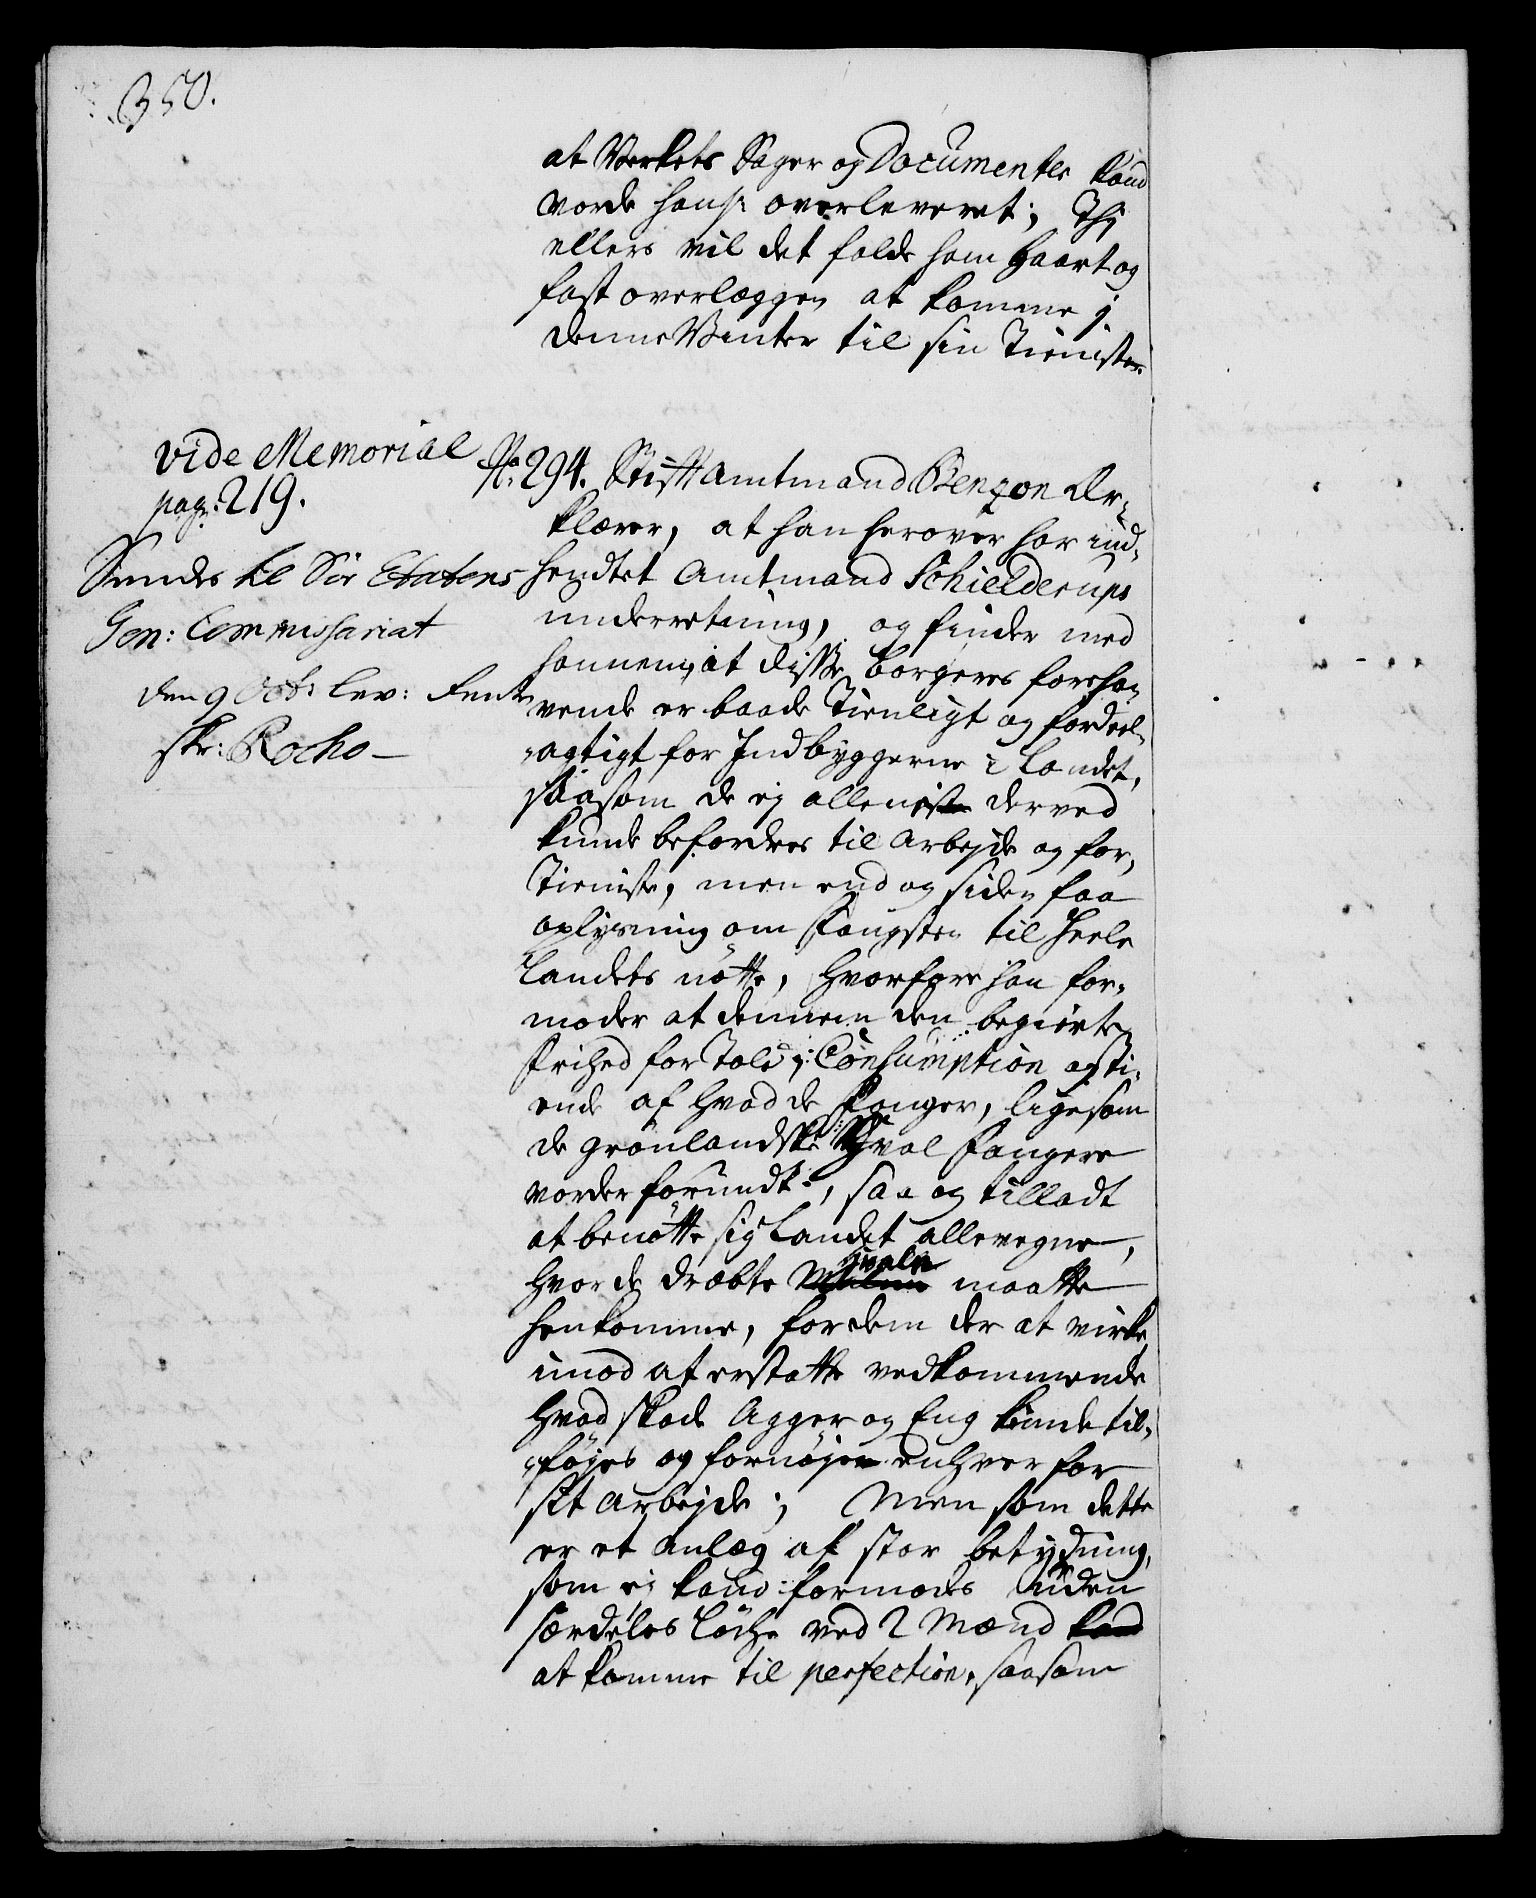 350.
at Verkets Sager og Documenter kand
vorde ham overleveret; Thj
ellers vil det falde ham haart og
fast overlæggen at komme j
denne Vinter til sin Tieniste.
vide Memorial
pag: 219.
Sendes til Söe Etatens
Gen: Commissariat
den 9 Octbr lev:
skr: Rocho
No: 294. Stiftamtmand Benzon Er-
klærer, at han herover har ind-
hendtet Amtmand Schielderups
underretning, og finder med
hannem, at disse borgeres foreha-
vende er baade Tienligt og fordeel-
agtigt for Indbyggerne i Landet,
saasom de ej alleniste derved
kunde befordres til arbejde og for-
Tieniste, men end og siden faa
oplysning om Fangsten til heele
Landets nötte, hvorfore han for-
moder at dennem den begierte
Frihed for Told, Consumption og Ti-
ende af hvad de Fanger, ligesom
de grönlandske Hval Fangere
vorder forundt, saa og tilladt
at benötte sig Landet allevegne,
hvor de dræbte hvale maatte
henkomme, for dem der at virke,
imod at erstatte vedkommende
hvad skade Agger og Eng kunde til-
föjes og fornöje enhver for
sit arbejde; Men som dette
er et anlæg af stor betydning,
som ej kand formodes uden
særdeles löche ved 2 Mænd kand
at komme til perfection, saasom